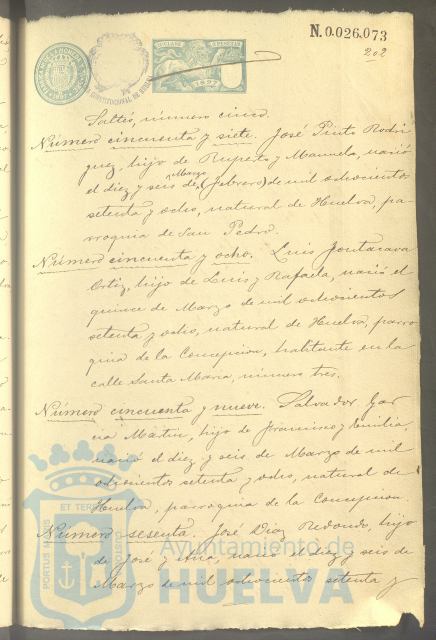 N.0.026.073
202
1897
Saltés, número cinco.
Número cincuenta y siete. José Pinto Rodrí
guez, hijo de Ruperto y Manuela, nació
Marzo
el diez y seis de (febrero) de mil ochocientos
setenta y ocho, natural de Huelva, pa-
rroquia de San Pedro.
Número cincuenta y ocho. Luis
Ortiz, hijo de Luis y Rafaela, nació el
quince de Marzo de mil ochocientos
setenta y ocho, natural de Huelva, parro
quia de la Concepcion, habitante en la
calle Santa María, número tres.
Número cincuenta y nueve. Salvador Gar
cia Martin, hijo de Francisco y Emilia,
nació el diez y seis de Marzo de mil
ochocientos setenta y ocho, natural de
Huelva, parroquia de la Concepcion.
Número sesenta. José Diaz Redondo, hijo
de José y Ana, nació el diez y seis de
Marzo de mil ochocientos setenta y
PORTUS MARIS ET TERRAE CUSTODIA
Ayuntamiento de
HUELVA